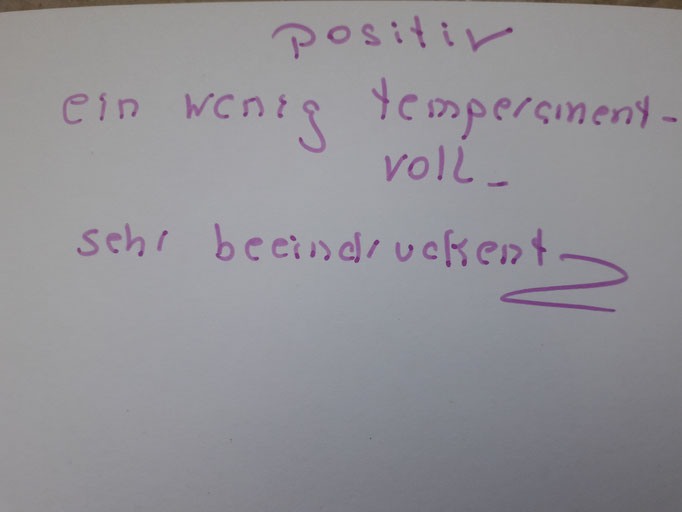 positiv
ein wenig temperament-
voll_
sehr beeindruckent